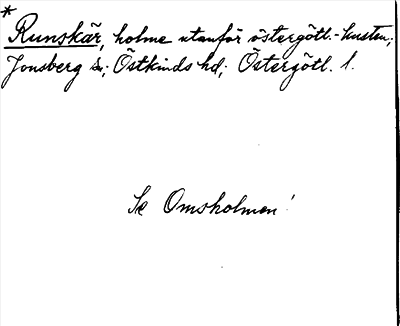 *
Runskär, holme utanför östergötl.-kusten;
Jonsberg sn; Östkinds hd; Östergötl. l.
Se Omsholmen!